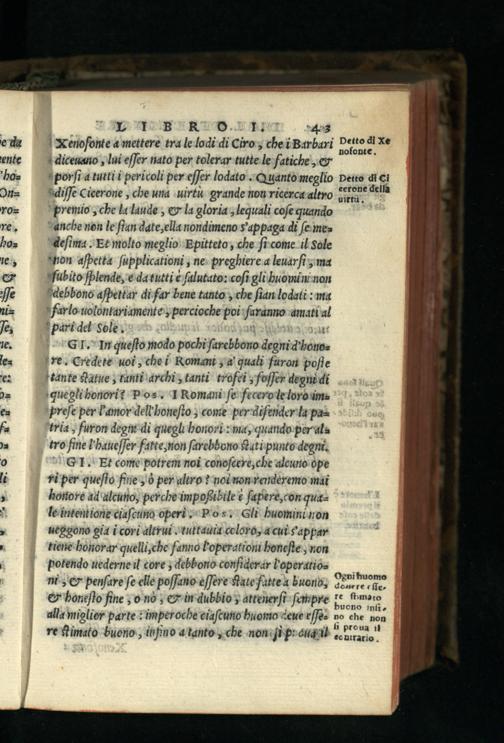 LIBRO I. 43
Xenofonte a mettere tra le lodi di Ciro, che i Barbari
diceuano, lui esser nato per tolerar tutte le fatiche, &
porsi a tutti i pericoli per esser lodato. Quanto meglio
disse Cicerone, che una uirtù grande non ricerca altro
premio, che la laude, & la gloria, lequali cose quando
anche non le sian date, ella nondimeno s'appaga di se me=
desima. Et molto meglio Epitteto, che sì come il Sole
non aspetta supplicationi, ne preghiere a leuarsi, ma
subito splende, e da tutti è salutato: così gli huomini non
debbono aspettar di far bene tanto, che sian lodati: ma
farlo uolontariamente, percioche poi saranno amati al
pari del Sole.
GI. In questo modo pochi sarebbono degni d'hono=
re. Credete uoi, che i Romani, a' quali furon poste
tante statue, tanti archi, tanti trofei, fosser degni di
quegli honori? Pos. I Romani se fecero le loro im=
prese per l'amor dell'honesto, come per difender la pa=
tria, furon degni di quegli honori: ma, quando per al=
tro fine l'hauesser fatte, non sarebbono stati punto degni.
GI. Et come potrem noi conoscere, che alcuno ope
ri per questo fine, ò per altro? noi non renderemo mai
honore ad alcuno, perche impossibile è sapere, con qua=
le intentione ciascuno operi. Pos. Gli huomini non
ueggono gia i cori altrui. tuttauia coloro, a cui s'appar
tiene honorar quelli, che fanno l'operationi honeste, non
potendo uederne il core, debbono considerar l'operatio=
ni, & pensare se elle possano essere state fatte a buono,
& honesto fine, o nò, & in dubbio, attenersi sempre
alla miglior parte: imperoche ciascuno huomo deue esse=
re stimato buono, infino a tanto, che non si proua il
Detto di Xe
nofonte.
Detto di Ci
cerone della
uirtù.
Ogni huomo
douere esse=
re stimato
buono infi=
no che non
si proua il
contrario.